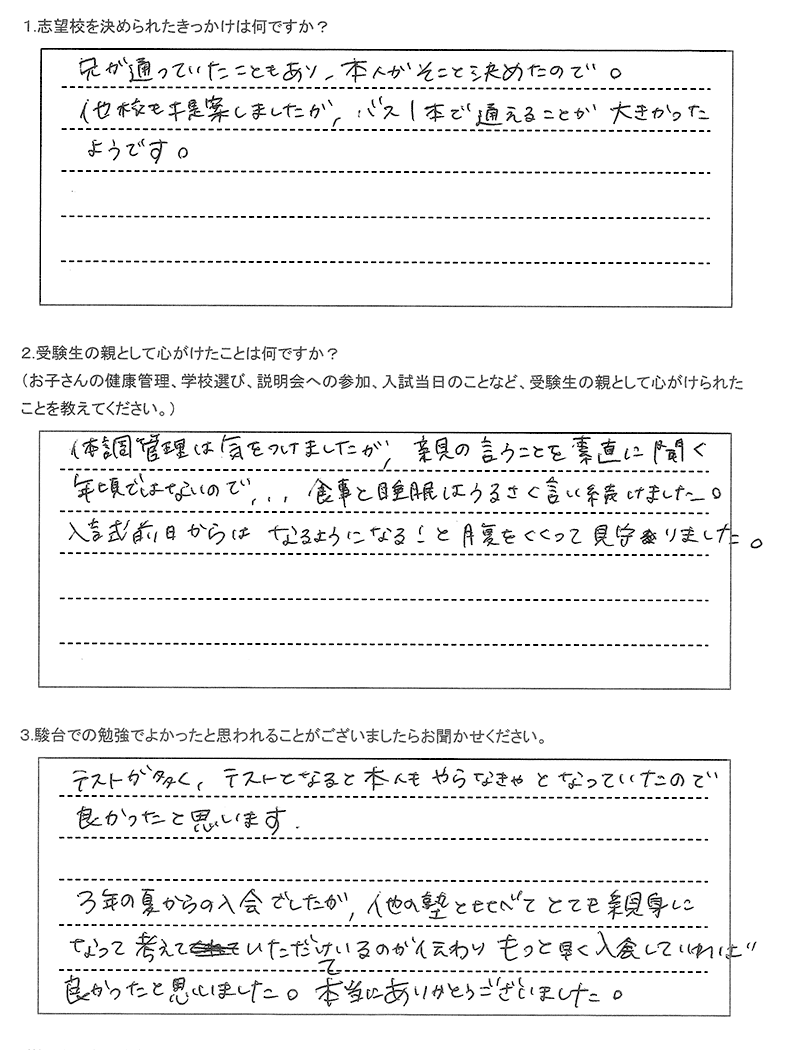 1.志望校を決められたきっかけは何ですか？
兄が通っていたこともあり、本人がそこと決めたので。
他校も提案しましたが、バス1本で通えることが大きかった
ようです。
2.受験生の親として心がけたことは何ですか？
（お子さんの健康管理、学校選び、説明会への参加、入試当日のことなど、受験生の親として心がけられた
ことを教えてください。）
体調管理は気をつけましたが、親の言うことを素直に聞く
年頃ではないので... 食事と睡眠はうるさく言い続けました。
入試前日からは なるようになる！と腹をくくって見守りました。
3.駿台での勉強でよかったと思われることがございましたらお聞かせください。
テストが多く、テストとなると本人もやらなきゃとなっていたので
良かったと思います.
3年の夏からの入会でしたが、他の塾と比べてとても親身に
なって考えていただけているのが伝わり もっと早く入会していれば
良かったと思いました。本当にありがとうございました。